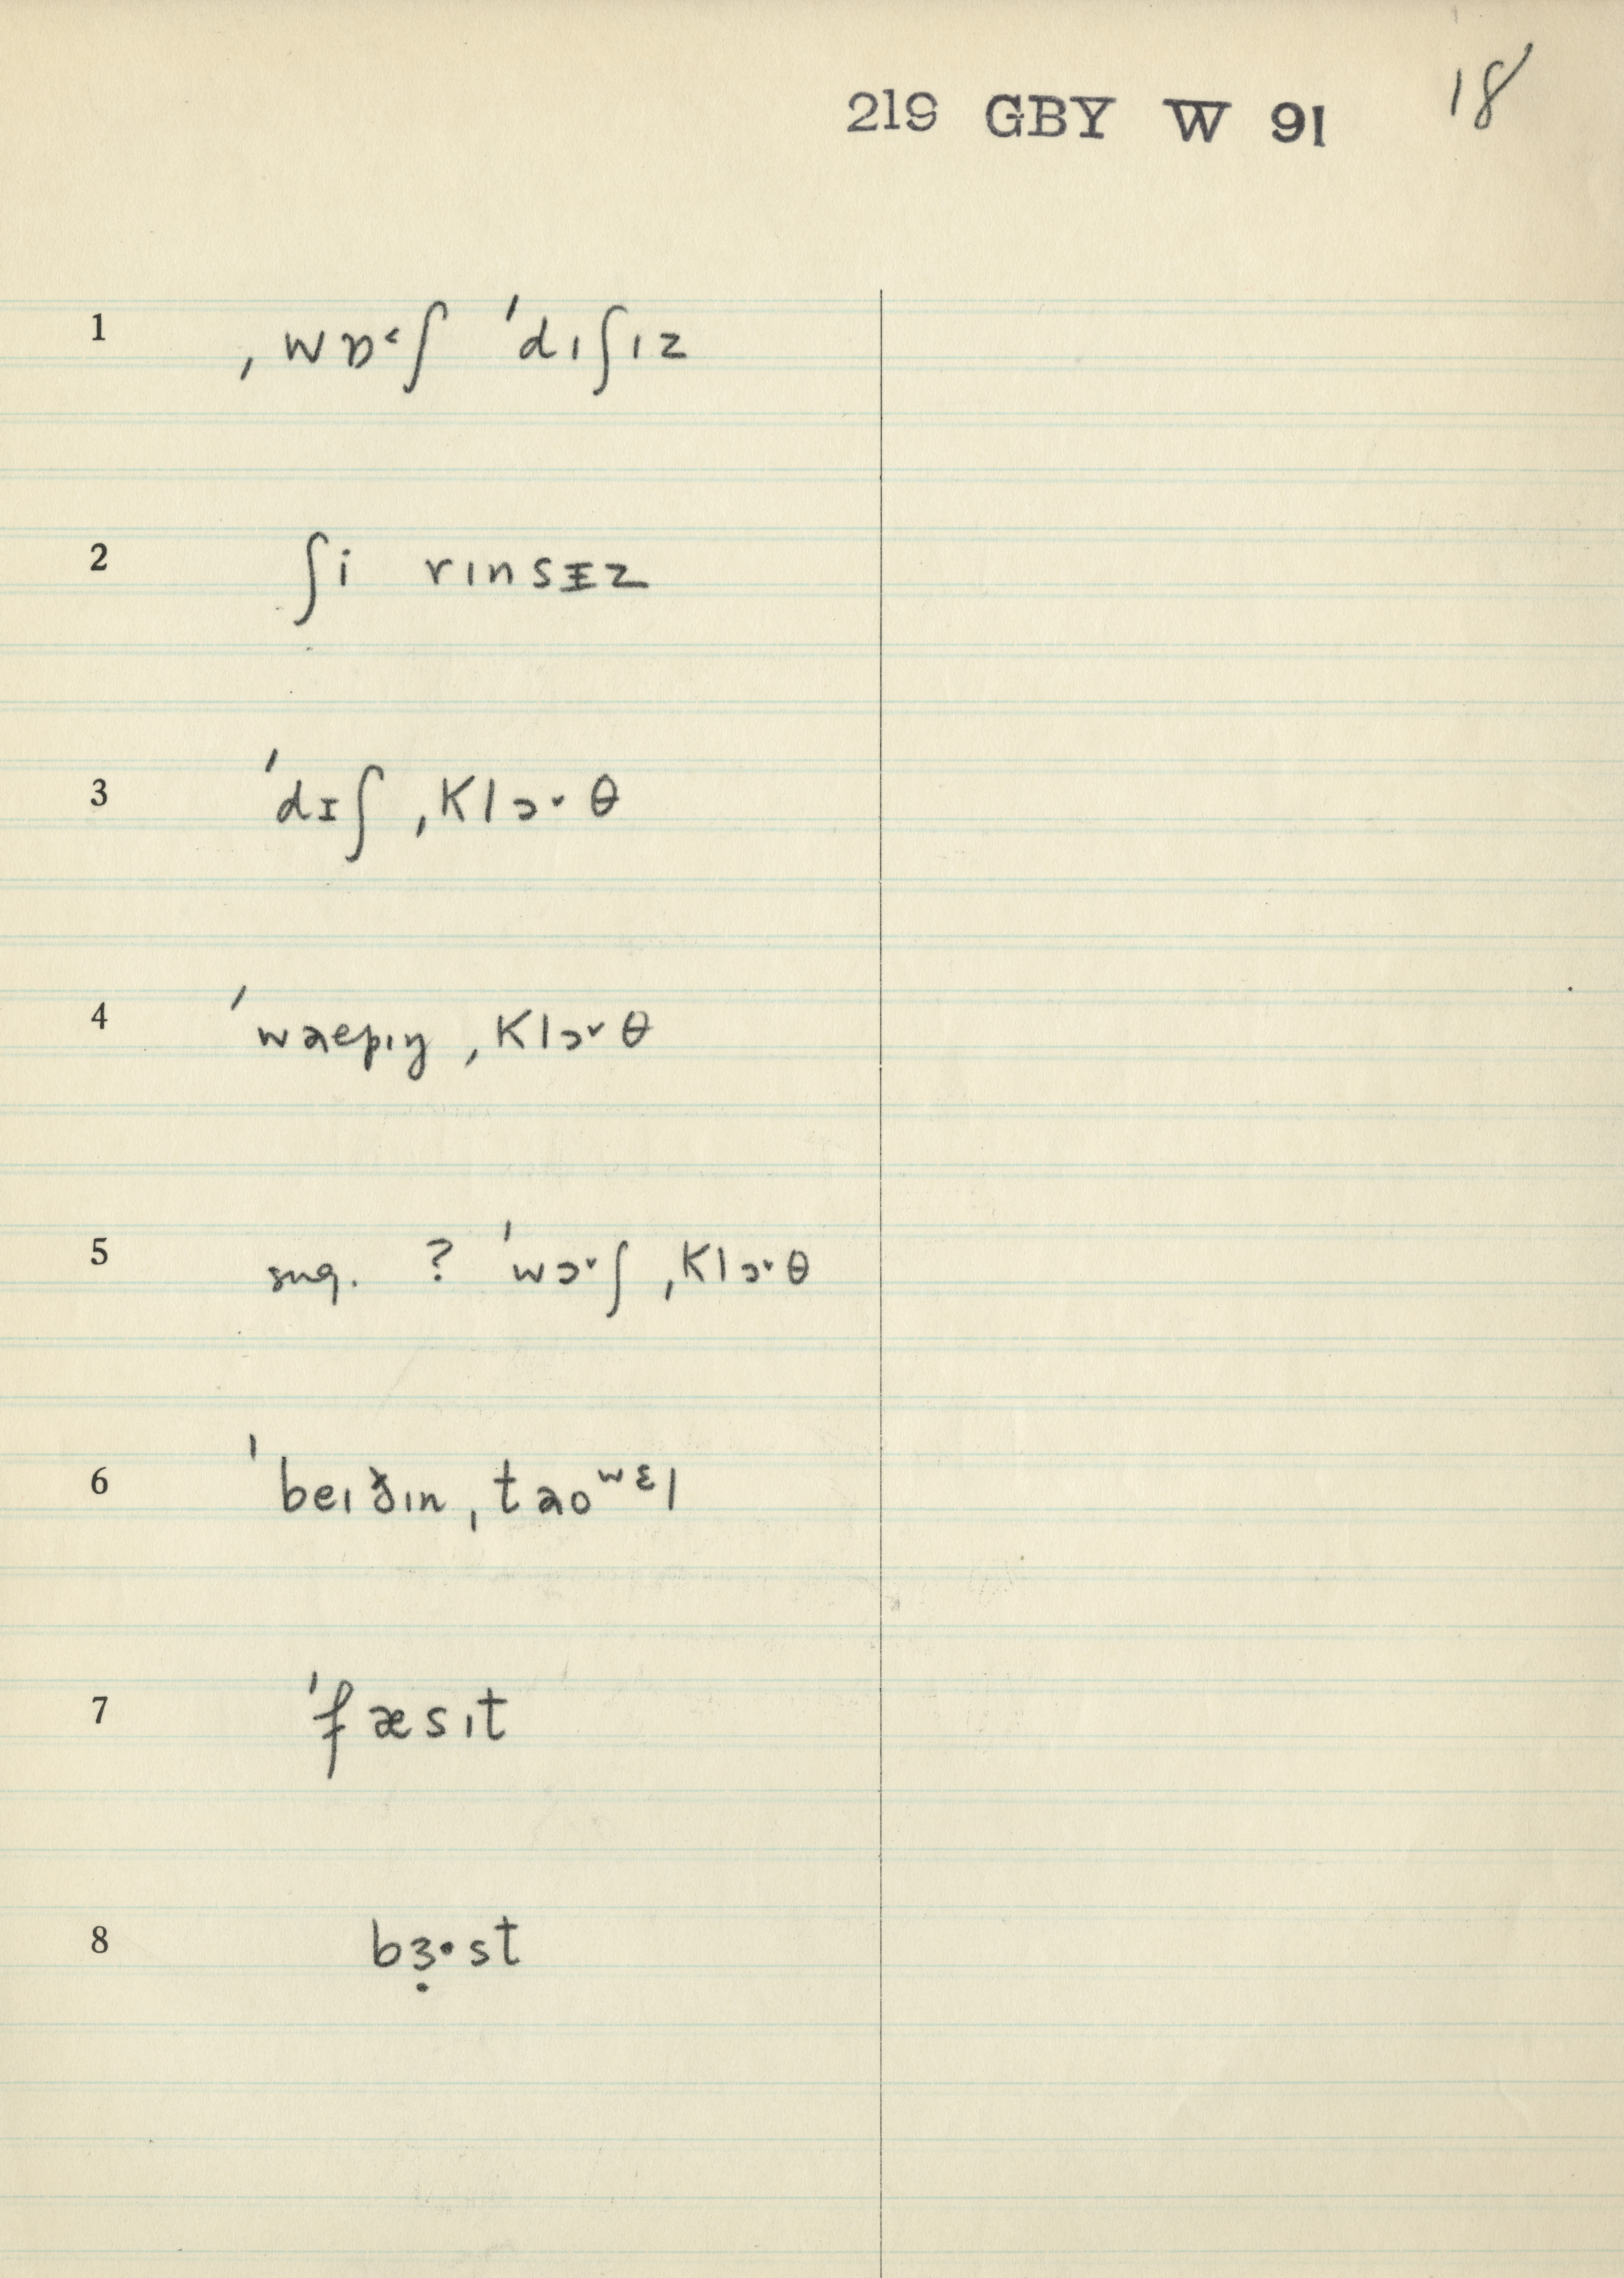 219 GBY W 91 18
1 ˌwɒ˂ʃ ˈdɪʃɪz
2 ʃi rɪnsɪz
3 ˈdɪʃˌklɔ˅θ
4 ˈwaepɪŋˌklɔ˅θ
5 sug. ? ˈwɔ˅ʃˌklɔ˅θ
6 ˈbeɪðɪnˌtaoʷᵋl
7 ˈfæsɪt
8 bɜ̣·st